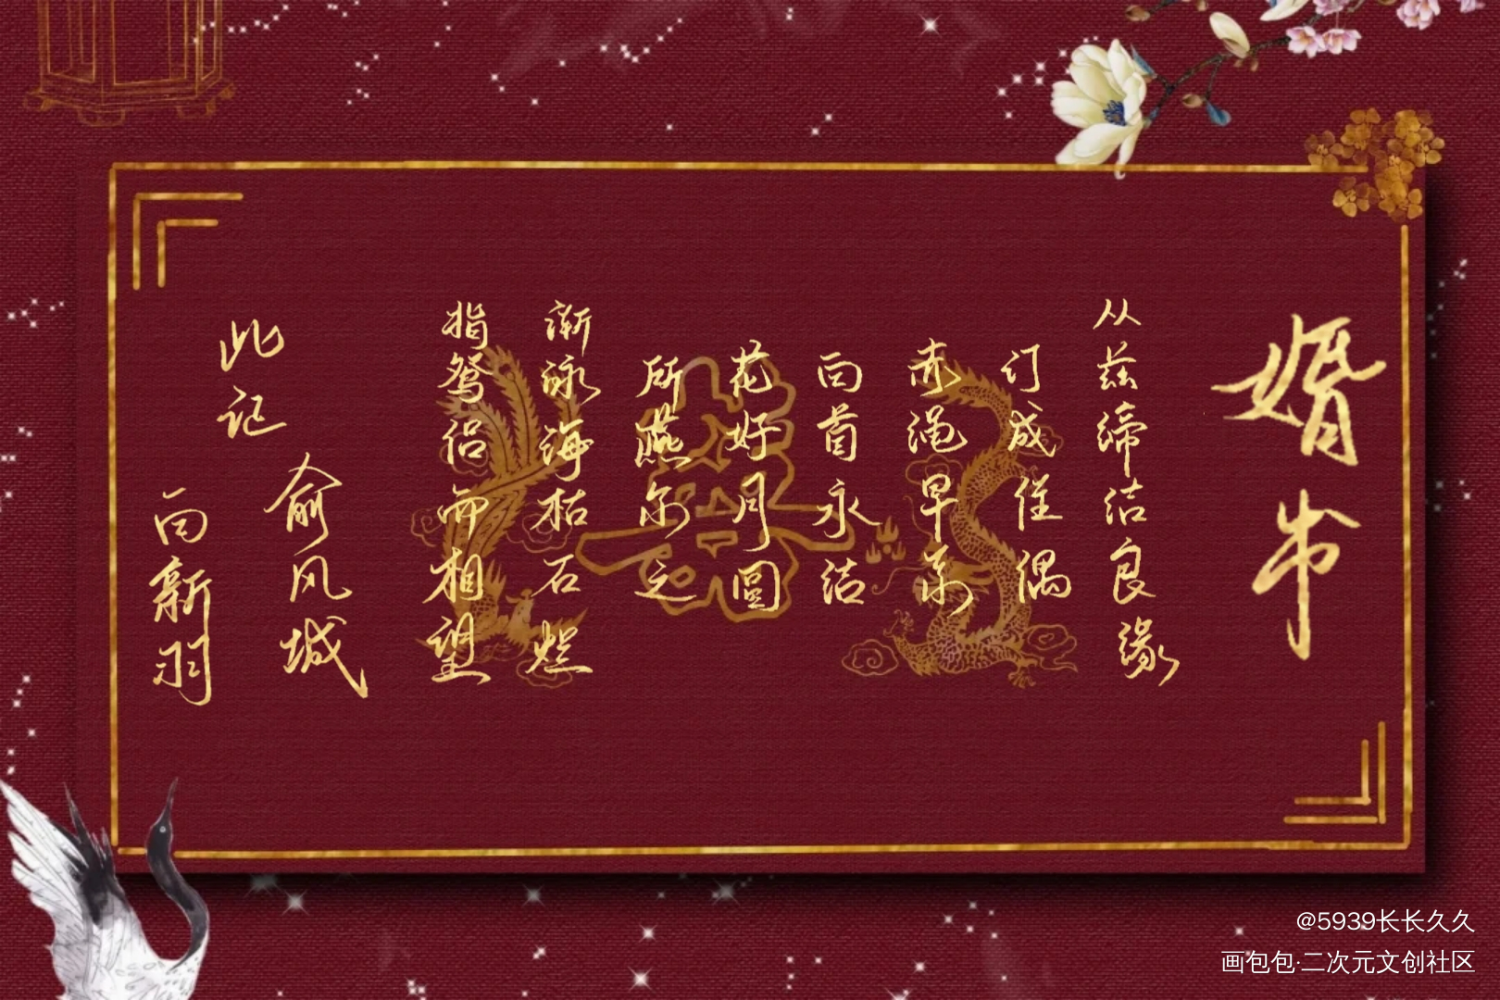 婚书
从兹缔结良缘
订成佳偶
赤绳早系
白首永结
花好月圆
欣燕尔之
渐泳海枯石烂
指鸳侣而
相望
此记
俞风城
白新羽
@5939长长久久
画包包·二次元文创社区